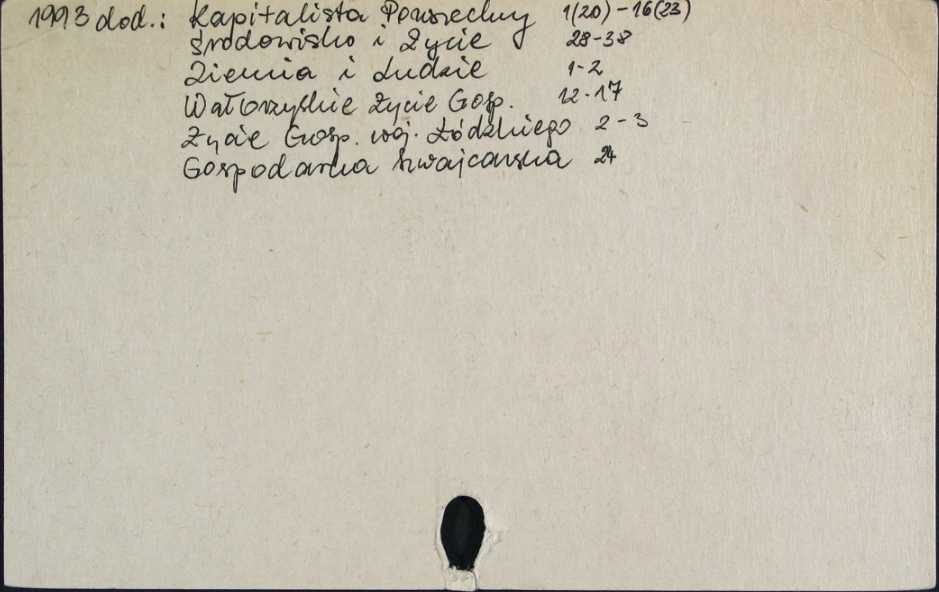 1993 dod.: Kapitalista Powszechny 1(20)-16(23)
Środowisko i Życie 28-38
Ziemia i Ludzie 1-2
Wałbrzyskie Życie Gosp. 12-17
Życie Gosp. woj. Łódzkiego 2-3
Gospodarka szwajcarska 24